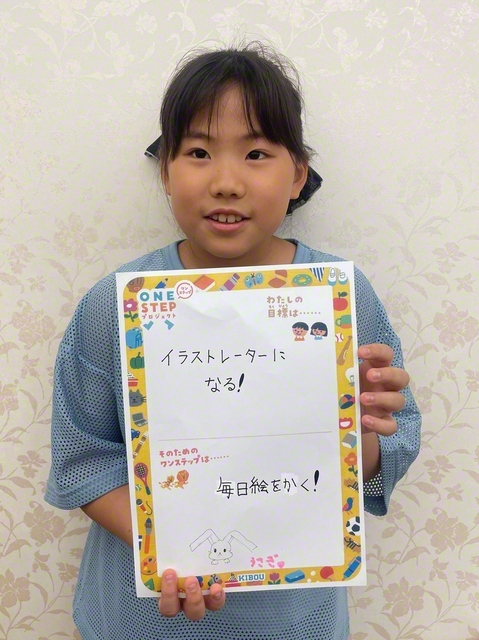 ONE
STEP
プロジェクト
ワンステップ
わたしの
もくひょう
目標は……
イラストレーターに
なる!
そのための
ワンステップは……
毎日絵をかく!
KIBOU